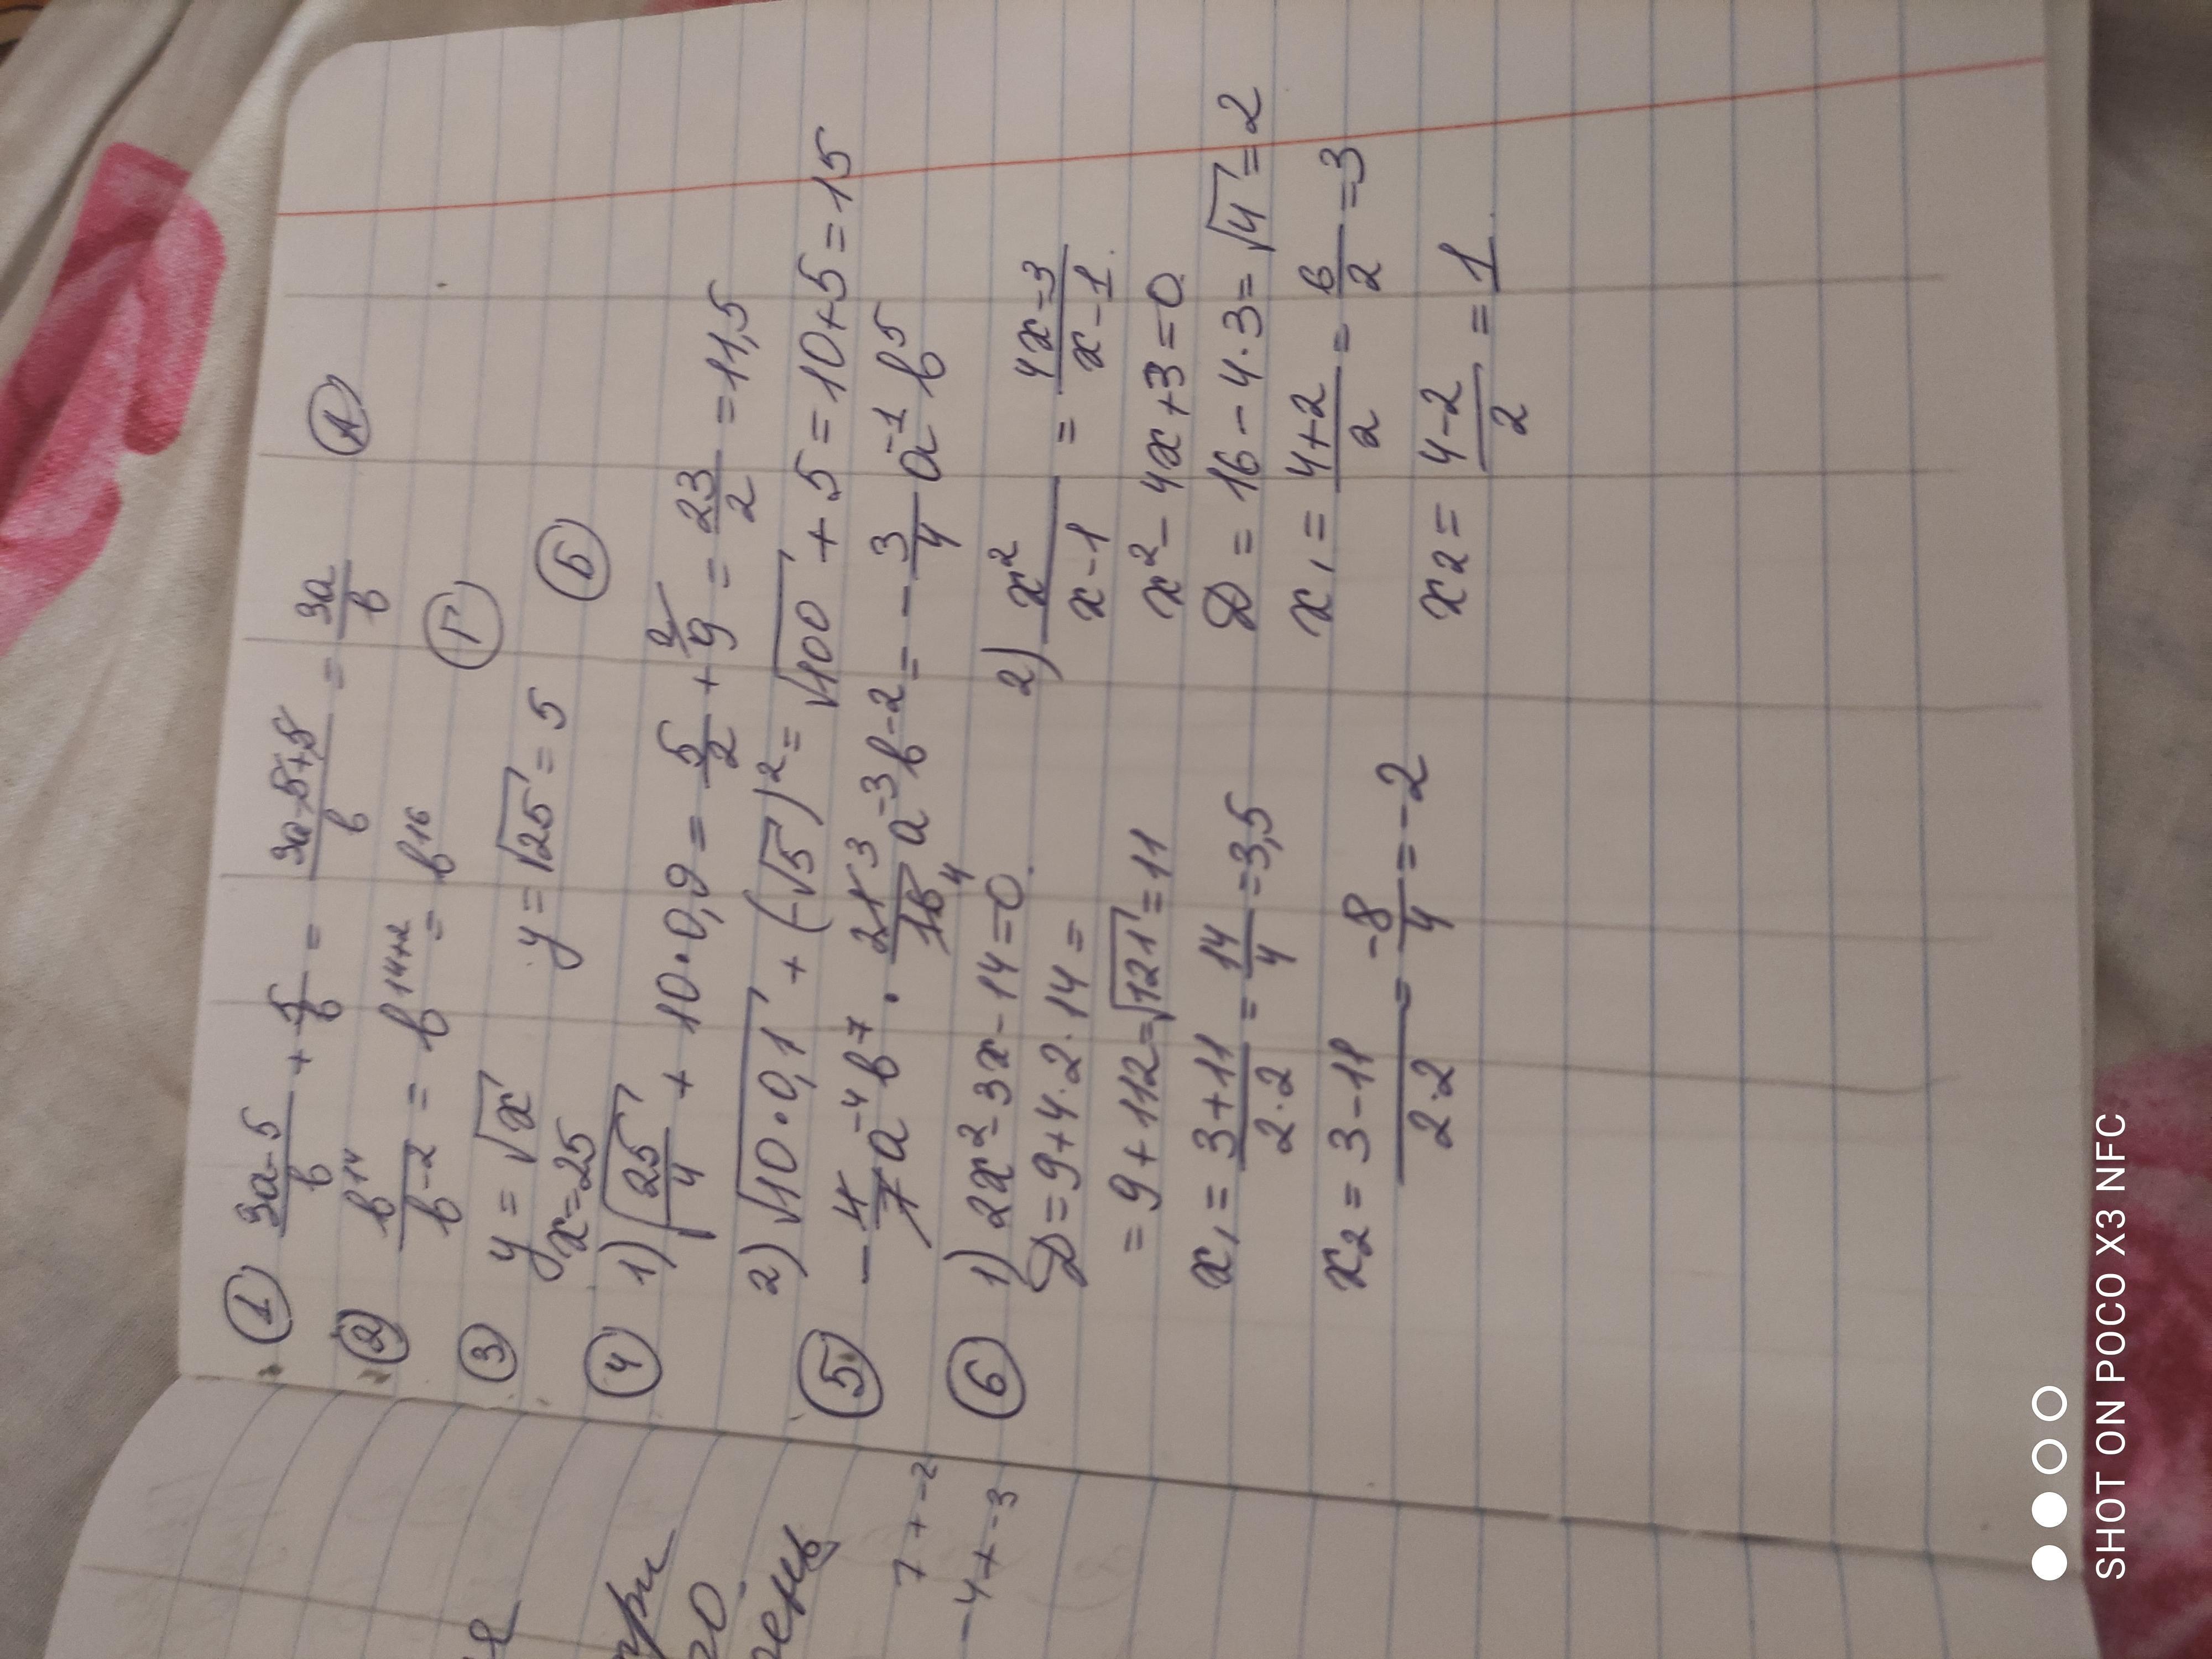 ① (3a-5)/b + 5/b = (3a-5+5)/b = 3a/b А
② b¹⁴/b⁻² = b¹⁴⁺² = b¹⁶ Г
③ y = √x y = √25 = 5 Б
x = 25
④ 1) √(25/4) + 10·0,9 = 5/2 + 9 = 23/2 = 11,5
2) √10·0,1 + (-√5)² = √100 + 5 = 10+5 = 15
⑤ -4/7 a⁻⁴b⁷ · 21³/16₄ a⁻³b⁻² = -3/4 a⁻¹b⁵
⑥ 1) 2x²-3x-14=0
D=9+4·2·14=
=9+112=√121=11
x₁ = (3+11)/(2·2) = 14/4 = 3,5
x₂ = (3-11)/(2·2) = -8/4 = -2
2) x²/(x-1) = (4x-3)/(x-1)
x²-4x+3=0
D = 16-4·3=√4=2
x₁ = (4+2)/2 = 6/2 = 3
x₂ = (4-2)/2 = 1
7+-2
-4+-3
SHOT ON POCO X3 NFC